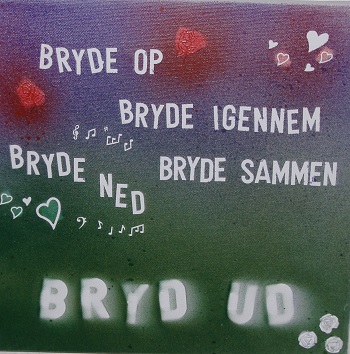 BRYDE OP
BRYDE IGENNEM
BRYDE NED
BRYDE SAMMEN
BRYD UD